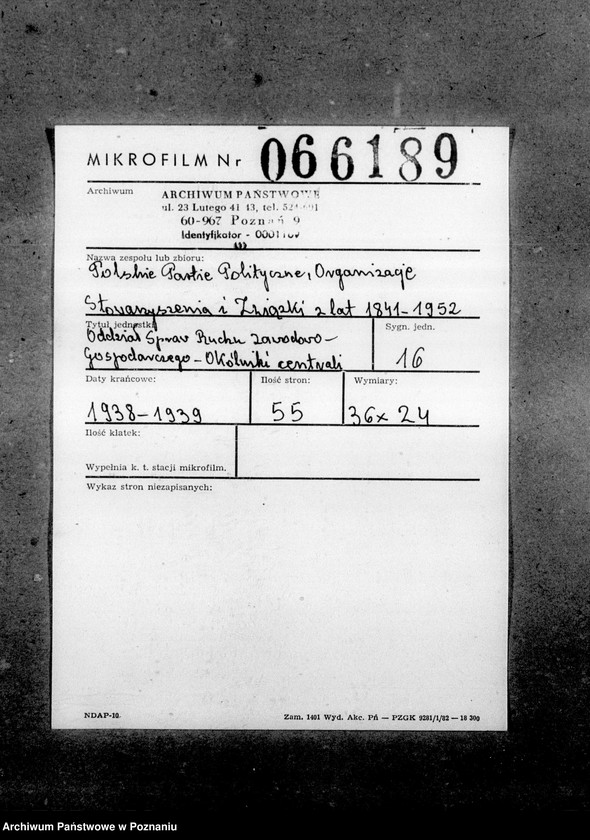 MIKROFILM Nr 066189
Archiwum
ARCHIWUM PAŃSTWOWE
ul. 23 Lutego 41 43, tel.
60-967 Poznań 9
Identyfikator -
Nazwa zespołu lub zbioru:
Polskie Partie Polityczne, Organizacje
Stowarzyszenia i Związki z lat 1841-1952
Tytuł jednostki
Oddział Spraw Ruchu zawodowo-
Gospodarczego - Okólniki centrali
Sygn. jedn.
16
Daty krańcowe:
1938-1939
Ilość stron:
55
Wymiary:
36x24
Ilość klatek:
Wypełnia k. t. stacji mikrofilm.
Wykaz stron niezapisanych:
NDAP-10.
Zam. 1401 Wyd. Akc. Pń — PZGK 9281/1/82 — 18 300
Archiwum Państwowe w Poznaniu